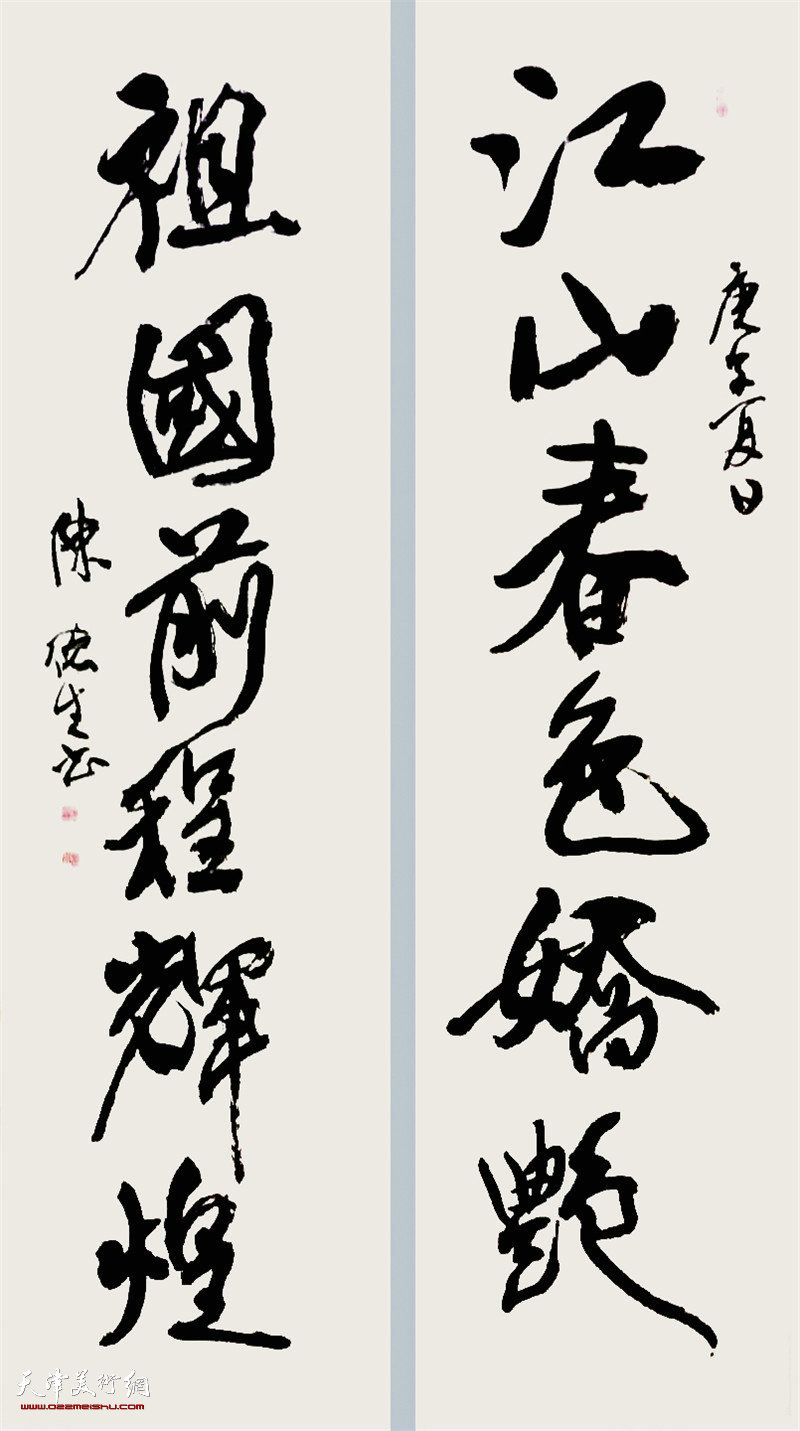 江山春色嬌艷
庚子夏日
祖國前程輝煌
陳德生书
天津美術網
www.022meishu.com